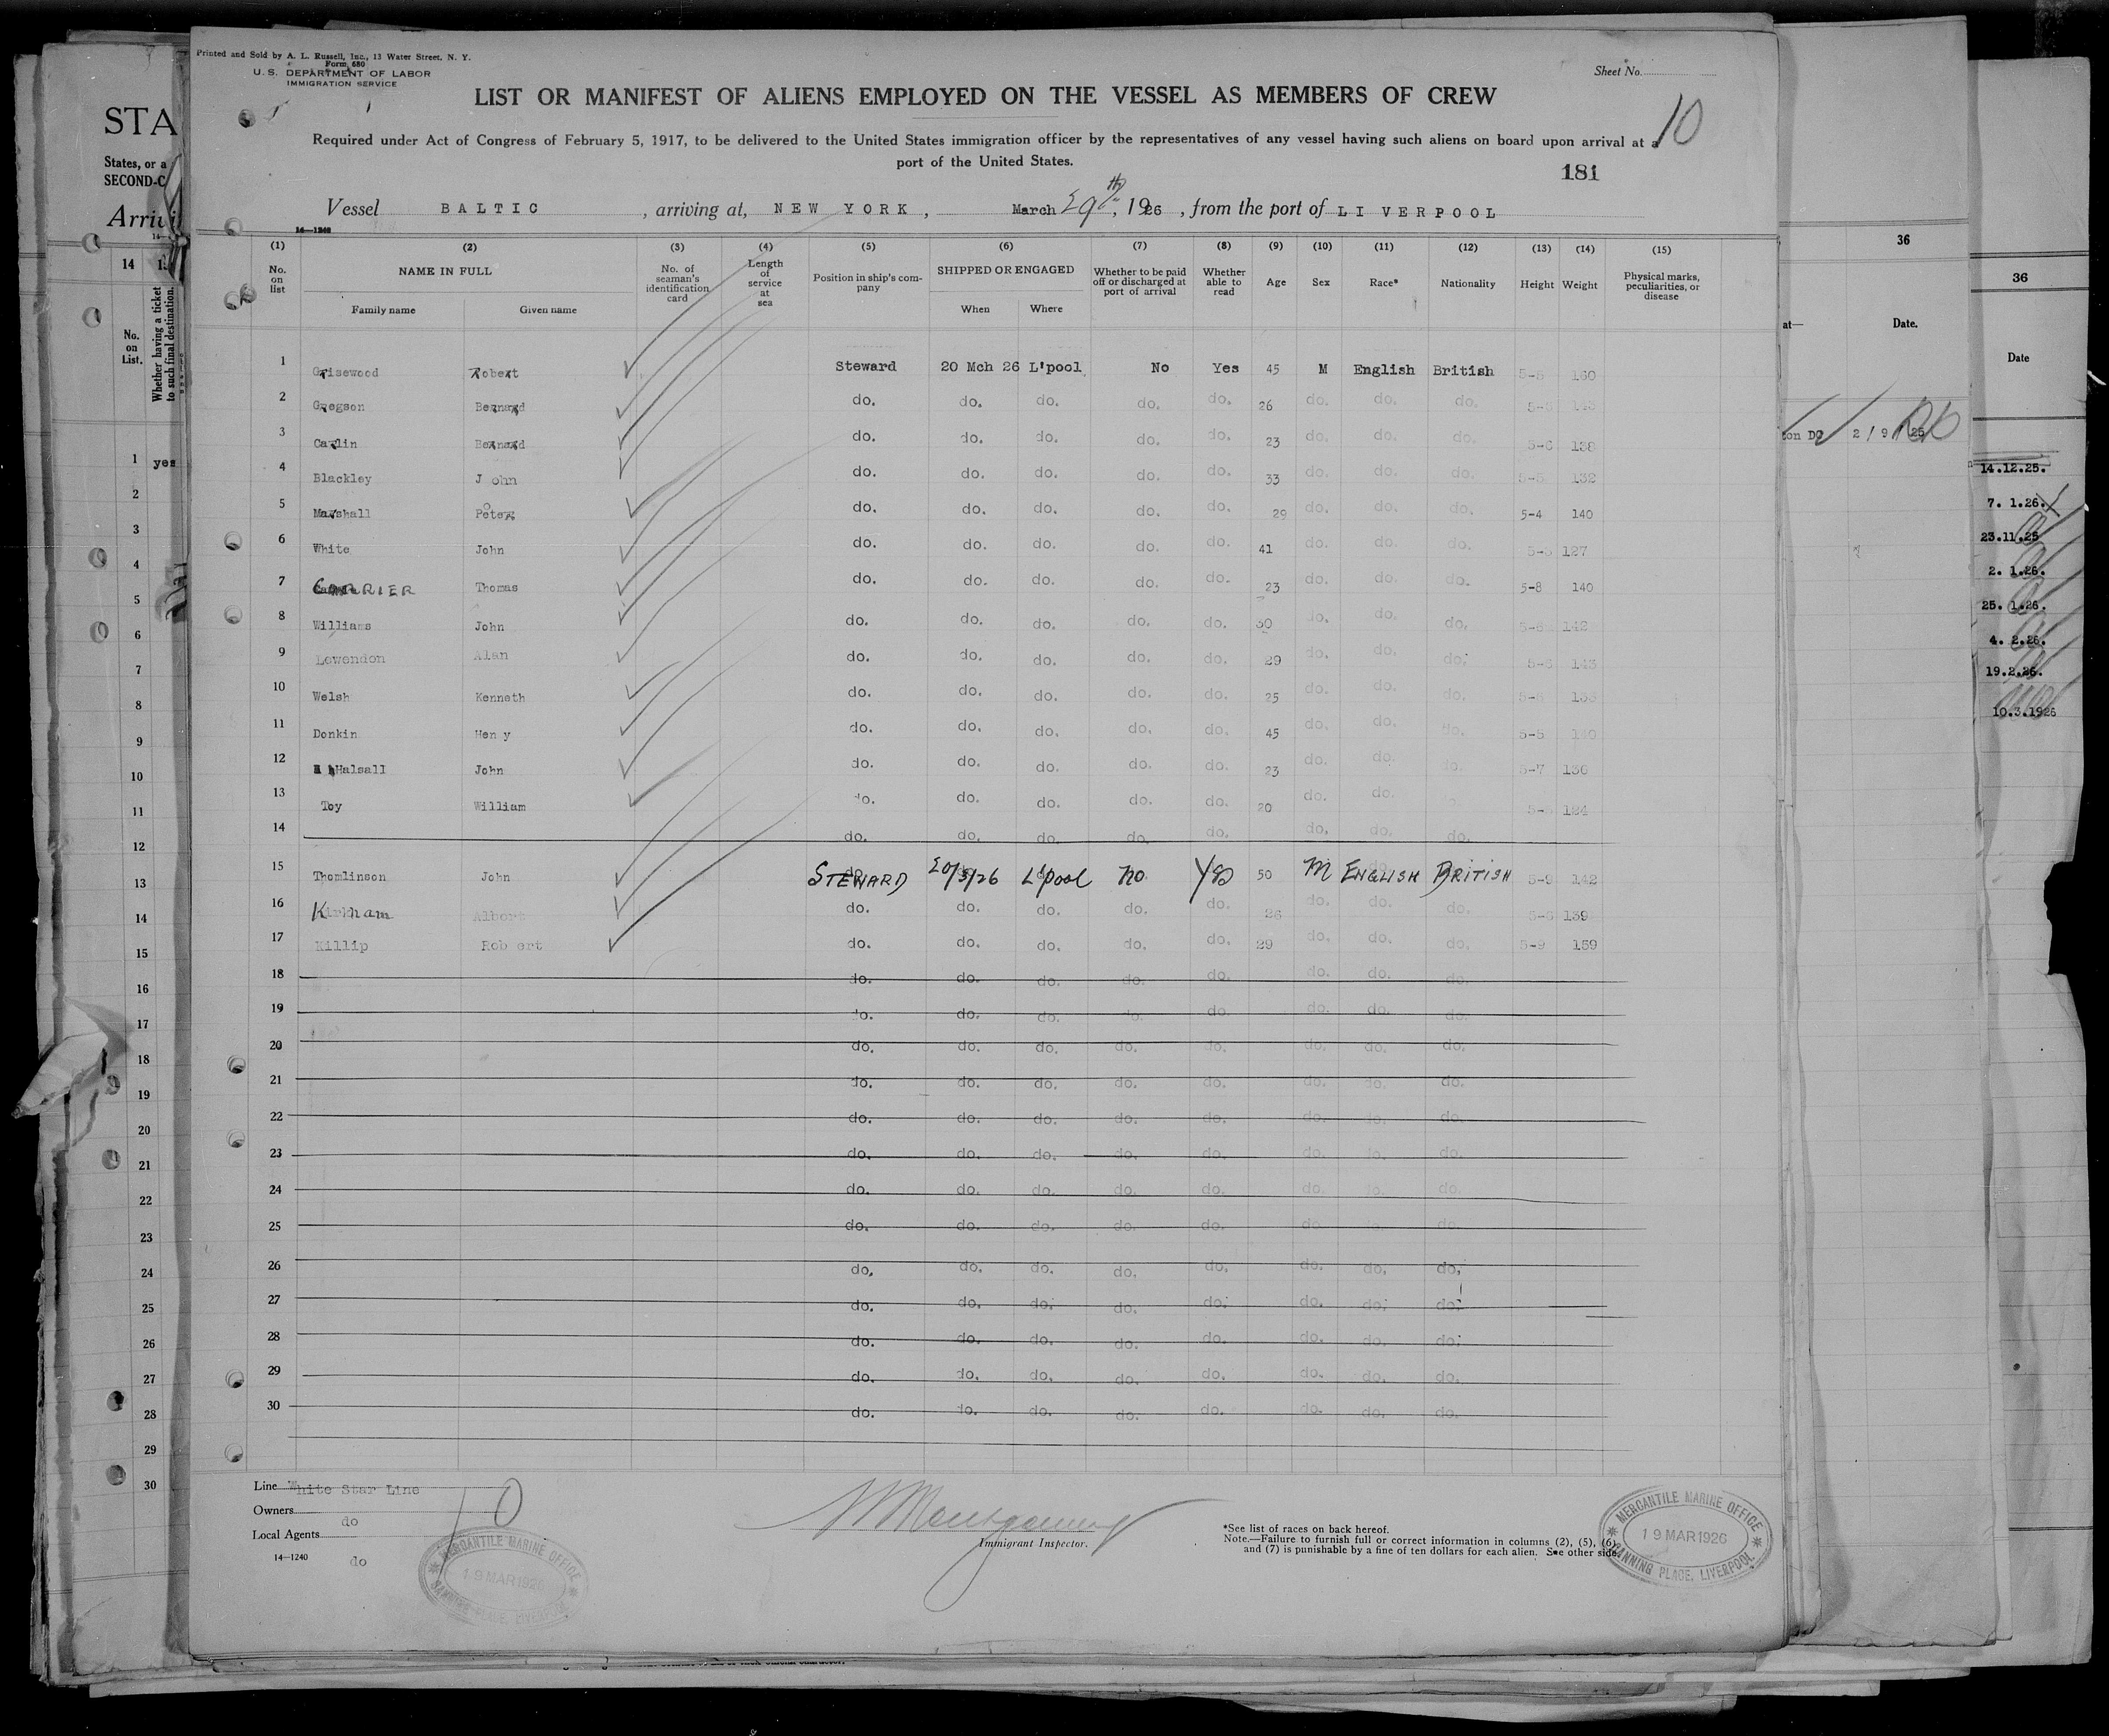 Printed and Sold by A. L. Russell, Inc., 13 Water Street, N. Y.
Form 680
U. S. DEPARTMENT OF LABOR
IMMIGRATION SERVICE
Sheet No.
LIST OR MANIFEST OF ALIENS EMPLOYED ON THE VESSEL AS MEMBERS OF CREW
10
Required under Act of Congress of February 5, 1917, to be delivered to the United States immigration officer by the representatives of any vessel having such aliens on board upon arrival at a
port of the United States.
181
Vessel BALTIC, arriving at, NEW YORK, March 29th, 1926, from the port of LIVERPOOL
14—1240
(1) (2) (3) (4) (5) (6) (7) (8) (9) (10) (11) (12) (13) (14) (15)
No. on list NAME IN FULL No. of seaman's identification card Length of service at sea Position in ship's company SHIPPED OR ENGAGED Whether to be paid off or discharged at port of arrival Whether able to read Age Sex Race* Nationality Height Weight Physical marks, peculiarities, or disease
Family name Given name When Where
1 Grisewood Robert Steward 20 Mch 26 L'pool No Yes 45 M English British 5-5 160
2 Gregson Bernard do. do. do. do. do. 26 do. do. do.
3 Carlin Bernard do. do. do. do. do. 23 do. do. do. 5-6 138
4 Blackley John do. do. do. do. do. 33 do. do. do. 5-5 132
5 Marshall Peter do. do. do. do. do. 29 do. do. do. 5-4 140
6 White John do. do. do. do. do. 41 do. do. do. 127
7 CARRIER Thomas do. do. do. do. do. 23 do. do. do. 5-8 140
8 Williams John do. do. do. do. do. 30 do. do. do. 5-6 142
9 Lowendon Alan do. do. do. do. do. 29 do. do. do. 145
10 Welsh Kenneth do. do. do. do. do. 25 do. do. do.
11 Donkin Hen y do. do. do. do. do. 45 do. do. do. 5-5 140
12 Halsall John do. do. do. do. do. 23 do. do. do. 5-7 136
13 Toy William do. do. do. do. do. 20 do. do. 124
14 do. do. do. do. do. do. do. do.
15 Thomlinson John STEWARD 20/3/26 L'pool No Yes 50 M ENGLISH BRITISH 5-9 142
16 Kirkham Albert do. do. do. do. do. 26 do. do. do. 139
17 Killip Robert do. do. do. do. do. 29 do. do. do. 5-9 159
18 do. do. do. do. do. do. do. do.
19 do. do. do. do. do. do. do. do.
20 do. do. do. do. do. do. do. do.
21 do. do. do. do. do. do. do. do.
22 do. do. do. do. do. do. do. do.
23 do. do. do. do. do. do. do. do.
24 do. do. do. do. do. do. do. do.
25 do. do. do. do. do. do. do. do.
26 do. do. do. do. do. do. do. do.
27 do. do. do. do. do. do. do. do.
28 do. do. do. do. do. do. do. do.
29 do. do. do. do. do. do. do. do.
30 do. do. do. do. do. do. do. do.
Line White Star Line
Owners do
Local Agents do
14—1240
10
MERCANTILE MARINE OFFICE
19 MAR 1926
CANNING PLACE, LIVERPOOL
Montgomery
Immigrant Inspector.
*See list of races on back hereof.
Note.—Failure to furnish full or correct information in columns (2), (5), (6),
and (7) is punishable by a fine of ten dollars for each alien. See other side.
MERCANTILE MARINE OFFICE
19 MAR 1926
CANNING PLACE, LIVERPOOL
STA
States, or a
SECOND-C
Arrivi
14
No. on List.
Whether having a ticket to such final destination.
1 yes
2
3
4
5
6
7
8
9
10
11
12
13
14
15
16
17
18
19
20
21
22
23
24
25
26
27
28
29
30
36
at—
Date.
2/9/25
36
Date
14.12.25.
7. 1.26.
23.11.25
2. 1.26.
25. 1.26.
4. 2.26.
19.2.26.
10.3.1926